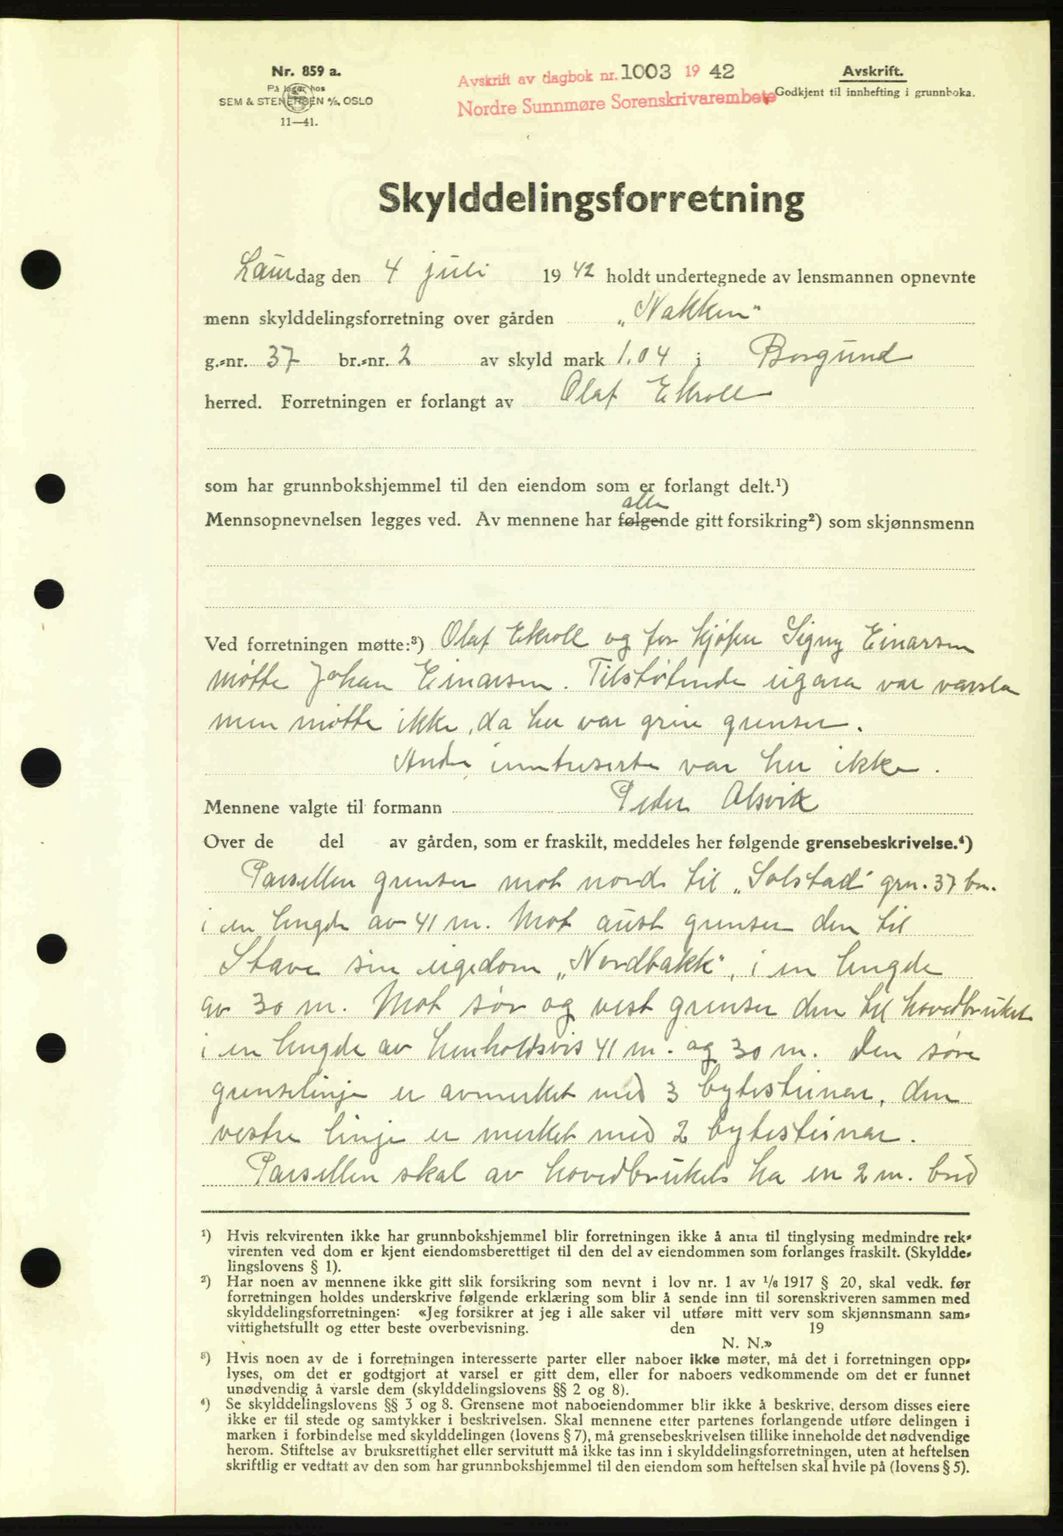 Nr. 859 a.
På lager hos
SEM & STENERSEN A/S, OSLO
11—41.
Avskrift av dagbok nr. 1003 19 42
Nordre Sunnmøre Sorenskrivarembete
Avskrift.
Godkjent til innhefting i grunnboka.
Skylddelingsforretning
Laurdag den 4 juli 19 42 holdt undertegnede av lensmannen opnevnte
menn skylddelingsforretning over gården „Nakken“
g.-nr. 37 br.-nr. 2 av skyld mark 1.04 i Borgund
herred. Forretningen er forlangt av Olaf Ekroll
som har grunnbokshjemmel til den eiendom som er forlangt delt.¹)
alle
Mennsopnevnelsen legges ved. Av mennene har følgende gitt forsikring²) som skjønnsmenn
Ved forretningen møtte:³) Olaf Ekroll og for kjøper Signy Einarsen
møtte Johan Einarsen. Tilstøtende eigara var varsla
men møtte ikke, da her var greie grenser.
Andre interesserte var her ikke.
Mennene valgte til formann Peder Alsvik
Over de del av gården, som er fraskilt, meddeles her følgende grensebeskrivelse.⁴)
Parsellen grenser mot nord til „Solstad“ grn. 37 bn.
i en lengde av 41 m. Mot aust grenser den til
Stave sin eigedom „Nordbakk“, i en lengde
av 30 m. Mot sør og vest grenser den til hovedbruket
i en lengde av henholdsvis 41 m. og 30 m. Den søre
grenselinje er avmerket med 3 bytesteinar, den
vestre linje er merket med 2 bytesteinar.
Parsellen skal av hovedbrukets ha en 2 m. breid
¹) Hvis rekvirenten ikke har grunnbokshjemmel blir forretningen ikke å anta til tinglysing medmindre rek-
virenten ved dom er kjent eiendomsberettiget til den del av eiendommen som forlanges fraskilt. (Skyldde-
lingslovens § 1).
²) Har noen av mennene ikke gitt slik forsikring som nevnt i lov nr. 1 av 1/6 1917 § 20, skal vedk. før
forretningen holdes underskrive følgende erklæring som blir å sende inn til sorenskriveren sammen med
skylddelingsforretningen: «Jeg forsikrer at jeg i alle saker vil utføre mitt verv som skjønnsmann sam-
vittighetsfullt og etter beste overbevisning. den 19
N. N.»
³) Hvis noen av de i forretningen interesserte parter eller naboer ikke møter, må det i forretningen opp-
lyses, om det er godtgjort at varsel er gitt dem, eller for naboers vedkommende om det er funnet
unødvendig å varsle dem (skylddelingslovens §§ 2 og 8).
⁴) Se skylddelingslovens §§ 3 og 8. Grensene mot naboeiendommer blir ikke å beskrive, dersom disses eiere
ikke er til stede og samtykker i beskrivelsen. Skal mennene etter partenes forlangende utføre delingen i
marken i forbindelse med skylddelingen (lovens § 7), må grensebeskrivelsen tillike inneholde det nødvendige
herom. Stiftelse av bruksrettighet eller servitutt må ikke tas inn i skylddelingsforretningen, uten at heftelsen
skriftlig er vedtatt av den som har grunnbokshjemmel til den eiendom som heftelsen skal hvile på (lovens § 5).